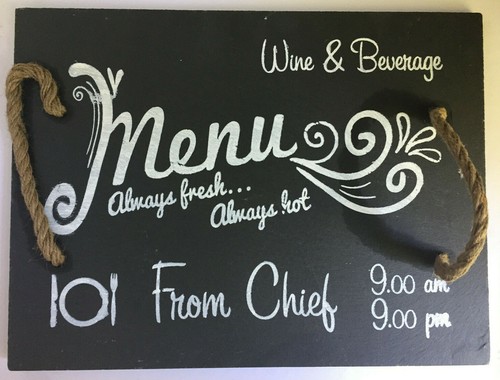 Wine & Beverage
Menu
Always fresh...
Always hot
From Chief
9.00 am
9.00 pm